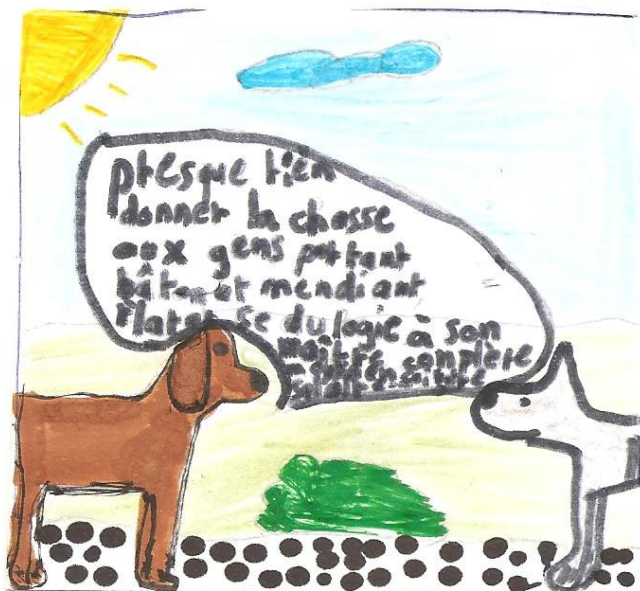 presque rien
donner la chasse
aux gens portant
bâton et mendiant
flater ce du logie à son
maître complère